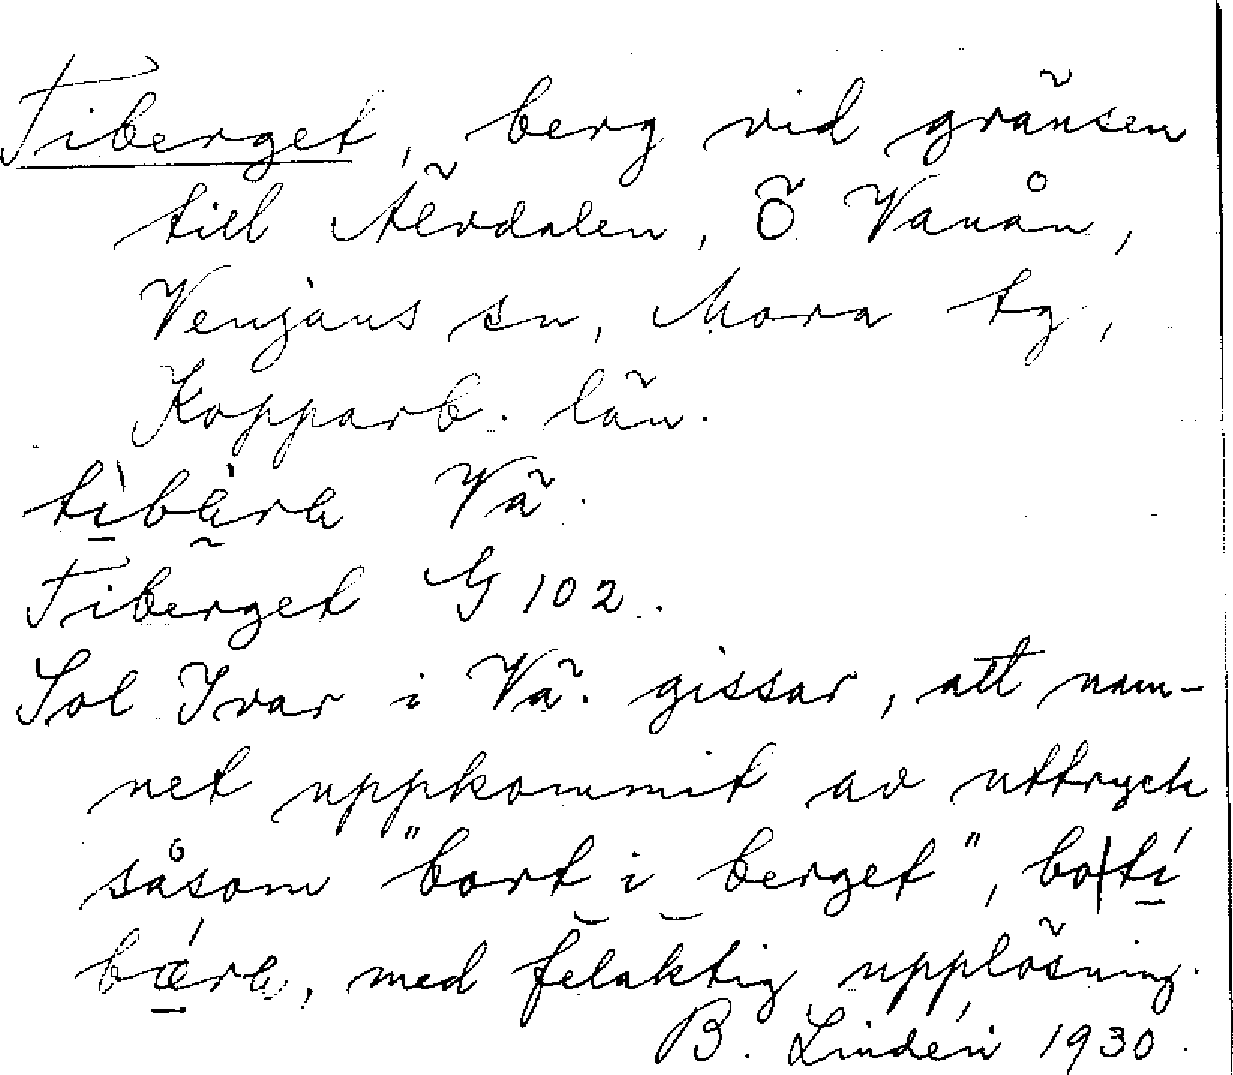 Tiberget, berg vid gränsen
till Älvdalen, Ö Vanån,
Venjans sn, Mora tg,
Kopparb. län.
tìbä̀rɐ Vä.
Tiberget G 102.
Sol Ivar i Vä. gissar, att nam-
net uppkommit av uttryck
såsom "bort i berget", bo|tí
bǽrɐ, med felaktig upplösning.
B. Lindén 1930.